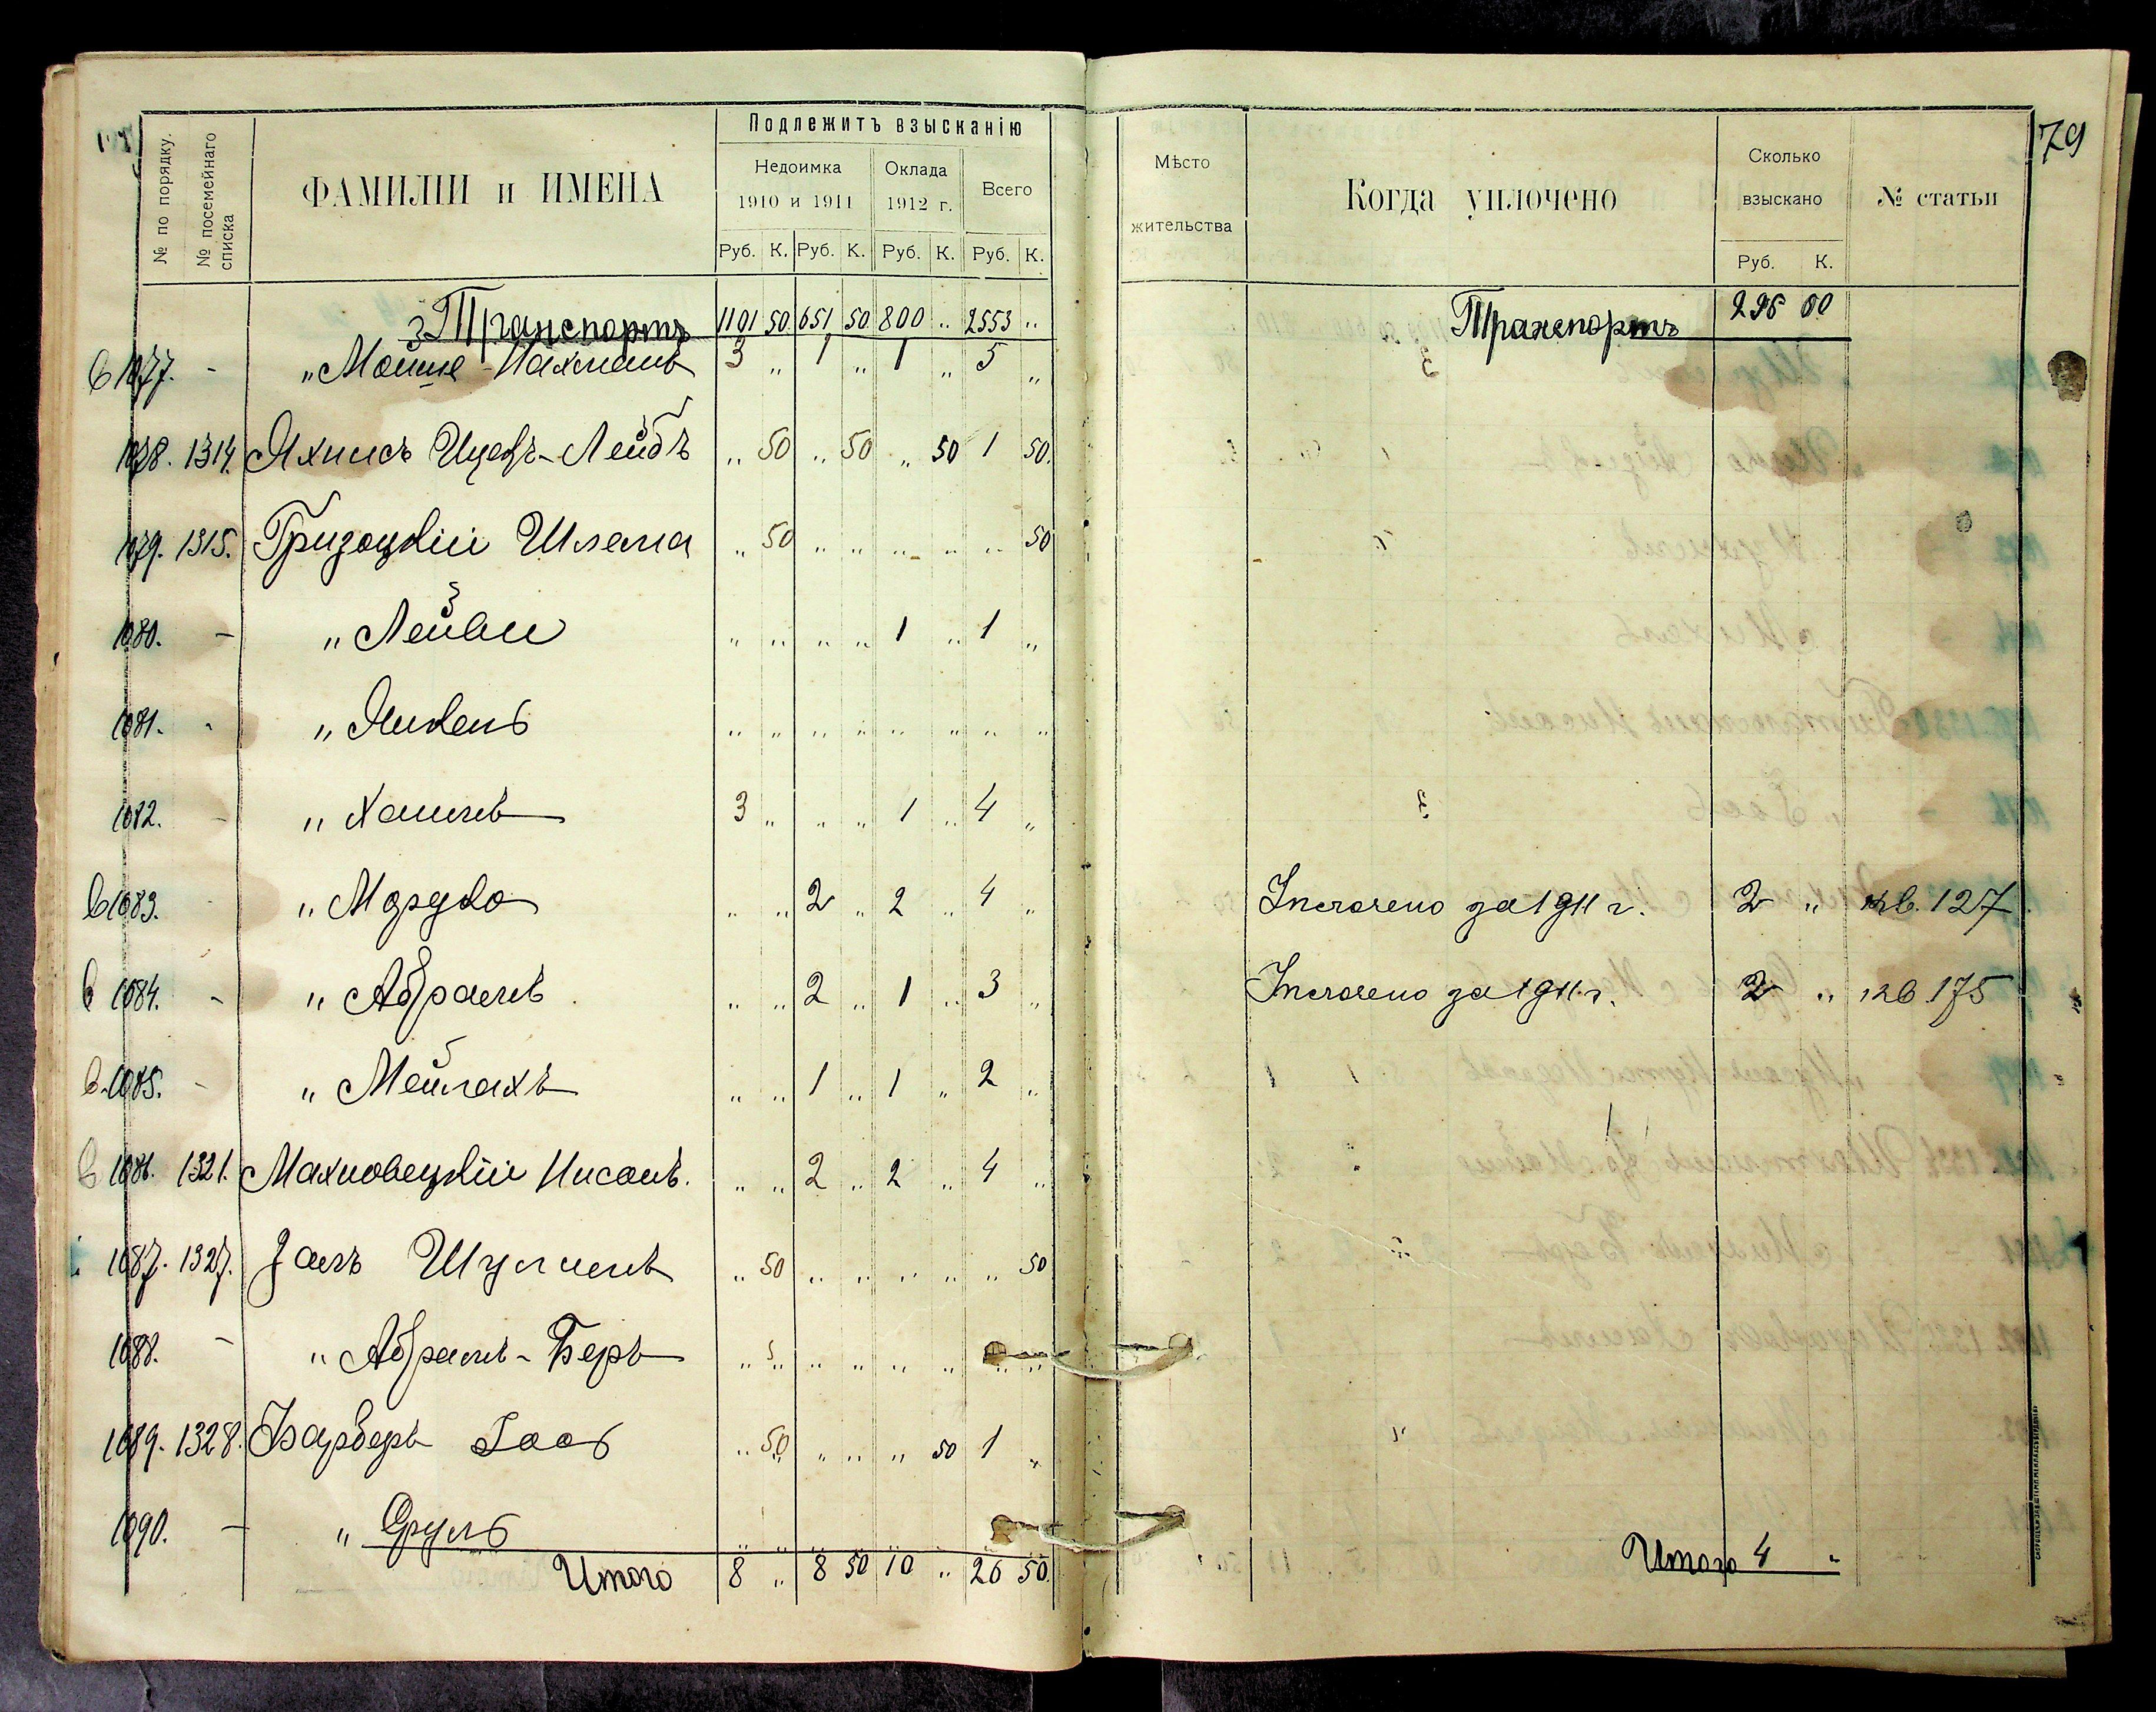 79
Подлежитъ взысканію
№ по порядку.
№ посемейнаго списка
ФАМИЛІИ и ИМЕНА
Недоимка 1910 и 1911
Оклада 1912 г.
Всего
Руб. К. Руб. К. Руб. К. Руб. К.
Мѣсто жительства
Когда уплочено
Сколько взыскано
Руб. К.
№ статьи
Транспортъ 1101 50 651 50 800 „ 2553 „ Транспортъ 296 00
1077. - „ Мошше-Нахманъ 3 „ 1 „ 1 „ 5 „
1078. 1314. Яхнисъ Ицекъ-Лейбъ „ 50 „ 50 „ 50 1 50.
1079. 1315. Гризоцкій Шлема „ 50 „ „ „ „ „ 50
1080. - „ Лейви „ „ „ „ 1 „ 1 „
1081. - „ Янкель „ „ „ „ „ „ „ „
1082. - „ Хаимъ 3 „ „ „ 1 „ 4 „
1083. - „ Мордко „ „ 2 „ 2 „ 4 „ Уплочено за 1911 г. 2 „ кв. 127
1084. - „ Абрамъ „ „ 2 „ 1 „ 3 „ Уплочено за 1911 г. 2 „ кв 175
1085. - „ Мейлахъ „ „ 1 „ 1 „ 2 „
1086. 1321. Махновецкій Нисонъ. „ „ 2 „ 2 „ 4 „
1087. 1327. Закъ Шулимъ „ 50 „ „ „ „ „ 50
1088. - „ Абрамъ-Беръ „ „ „ „ „ „ „ „
1089. 1328. Барберъ Іосъ „ 50 „ „ „ 50 1 „
1090. - „ Сруль „ „ „ „ „ „ „ „
Итого 8 „ 8 50 10 „ 26 50. Итого 4 „